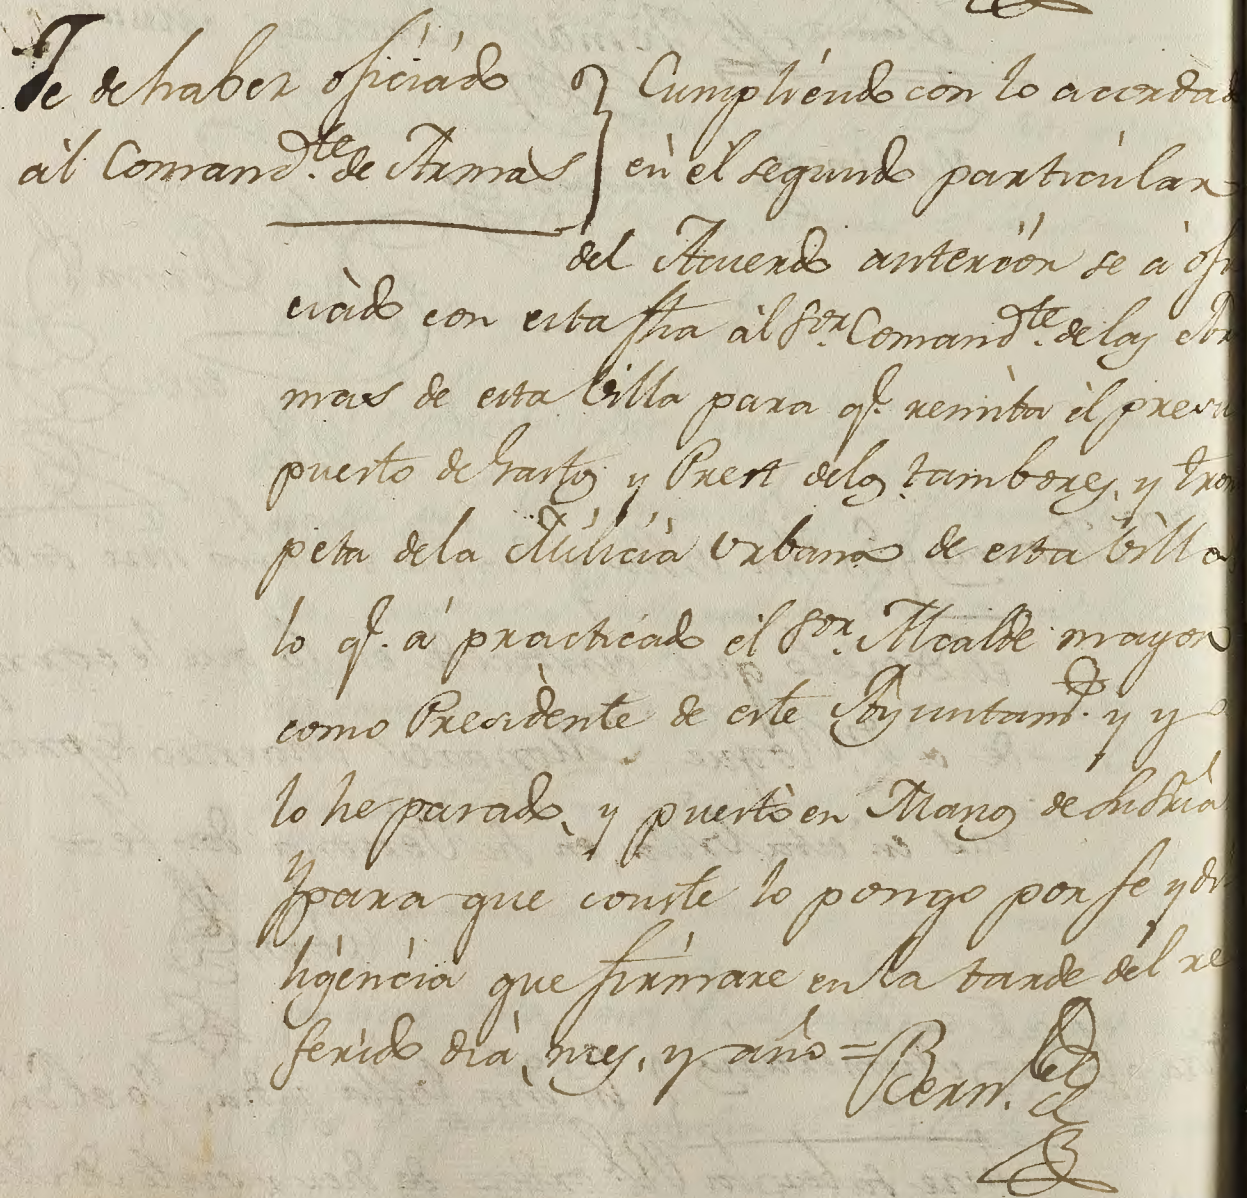 Fe de haber oficiado
àl Comand.te de Armas
Cumpliendo con lo acordad
en èl segundo particular
del Acuerdo anterior se à ofi
ciàdo con esta fha àl Sor. Comand.te de las Ar
mas de esta Villa para q.e remita èl presu
puesto de Gastos y Prest delos tambores, y trom
peta dela Milicia Urbana de esta Villa
lo q.e à practicado èl Sor. Alcalde mayor
como Presidente de este Ayuntam.to y yo
lo he parado, y puesto en Manos de su Sria
Y para que conste lo pongo por fe y di
ligencia que firmare en la tarde del re
ferido dia, mes, y año = Bern.